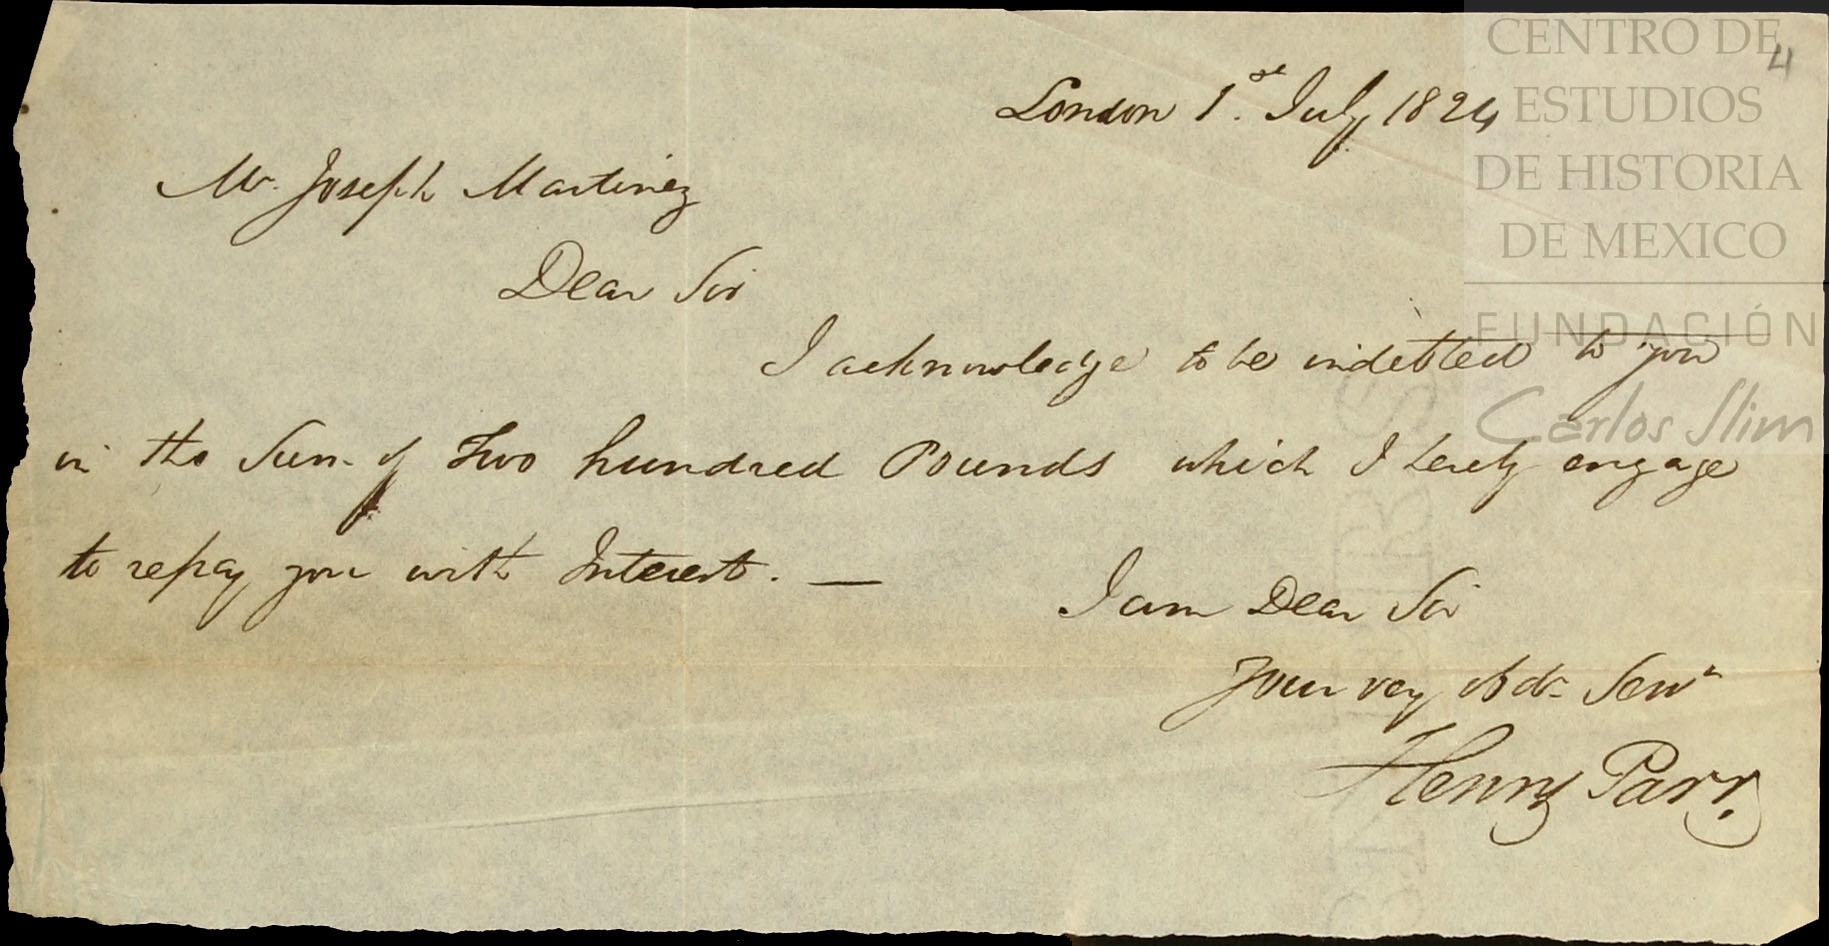 CENTRO DE
ESTUDIOS
DE HISTORIA
DE MEXICO
FUNDACIÓN
Carlos Slim
4
London 1st. July 1824
Mr. Joseph Martinez
Dear Sir
I acknowledge to be indebted to you
in the Sum of Two hundred Pounds which I hereby engage
to repay you with Interest. —
I am Dear Sir
Your very Obdt Servt
Henry Parr.